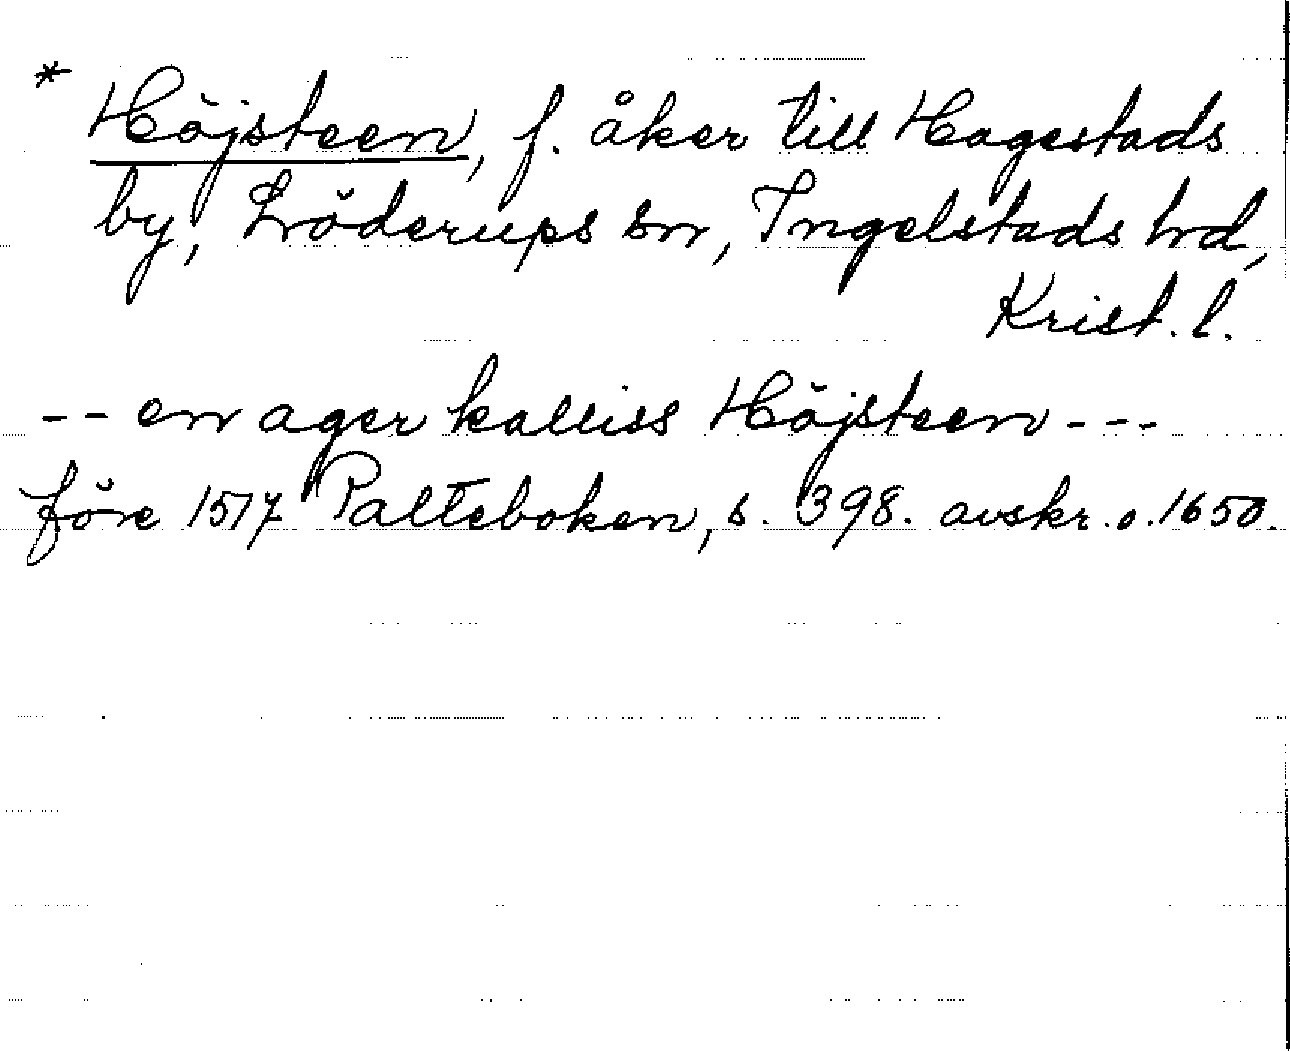 * Höjsteen, f. åker till Hagestads
by, Löderups sn, Ingelstads hd,
Krist. l.
-- en ager kalliss Höjsteen ---
före 1517 Palteboken, s. 398. avskr. o. 1650.